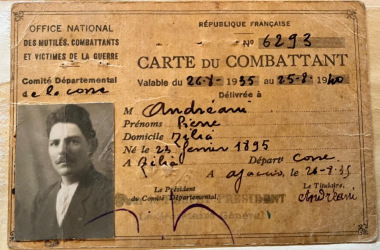 OFFICE NATIONAL
DES MUTILÉS, COMBATTANTS
ET VICTIMES DE LA GUERRE
Comité Départemental
de la Corse
RÉPUBLIQUE FRANÇAISE
No 6293
CARTE DU COMBATTANT
Valable du 26-8-1935 au 25-8-1940
Délivrée à
M Andréani
Prénoms Pierre
Domicile Zilia
Né le 23 février 1895
A Zilia Départt Corse
A ajaccio, le 26-8-35
Le Président
du Comité Départemental,
Le Titulaire,
Andréani
PRÉSIDENT
Général